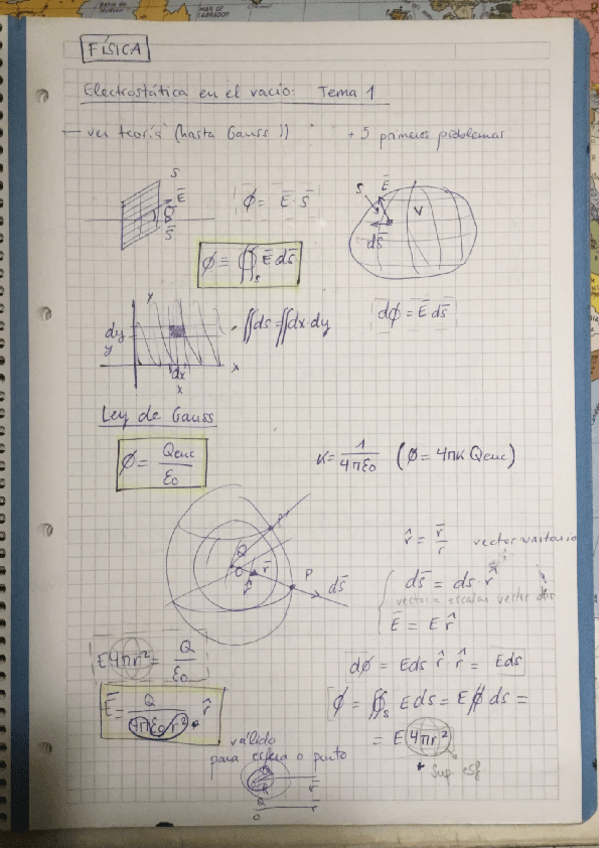 FÍSICA
Electrostática en el vacio: Tema 1
— ver teoría (hasta Gauss)) + 5 primeros problemas
S
E̅
S̅
ϕ = E̅ · S̅
S E̅
V
dS̅
ϕ = ∯s E̅ dS̅
dϕ = E̅ ds̅
y
dy
y
dx
x
x
∬ds = ∬dx·dy
Ley de Gauss
ϕ = Qenc / ε0
K = 1 / 4πε0 (ϕ = 4πK Qenc)
Q
r̅
r̂
P
ds̅
r̂ = r̅ / r vector unitario
ds̅ = ds · r̂
vector = escalar vector
E̅ = E r̂
E 4πr² = Q / ε0
dϕ = E ds r̂ r̂ = E ds
E̅ = Q / 4πε0 r² · r̂
ϕ = ∯s E ds = E ∯ ds =
= E 4πr²
* Sup esf
válido
para esfera o punto
Q
r̅
Q
O
r̅